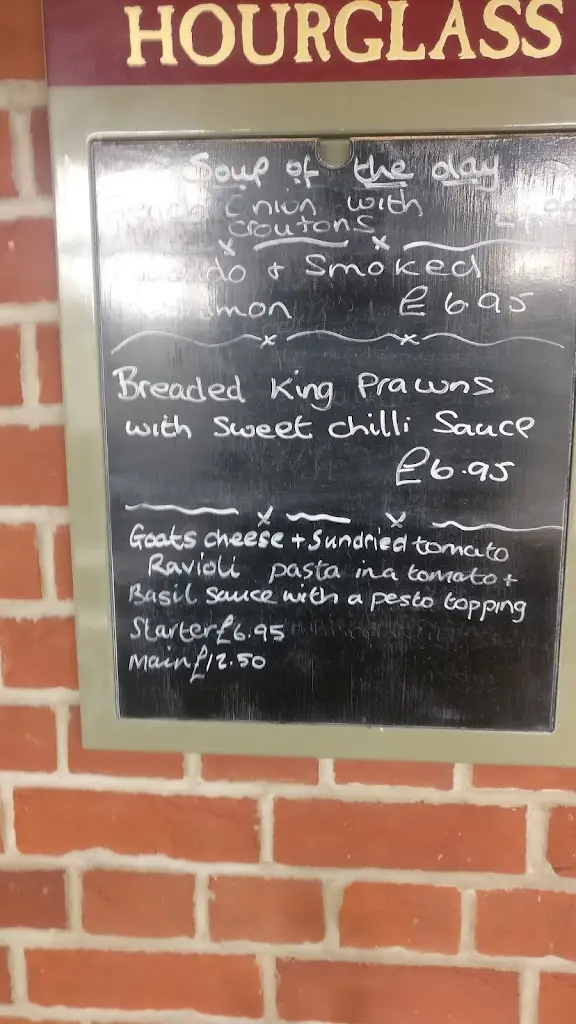 HOURGLASS
Soup of the day
Onion with
croutons
& Smoked
£6.95
Breaded King Prawns
with Sweet chilli Sauce
£6.95
Goats cheese + Sundried tomato
Ravioli pasta in a tomato +
Basil sauce with a pesto topping
Starter £6.95
Main £12.50